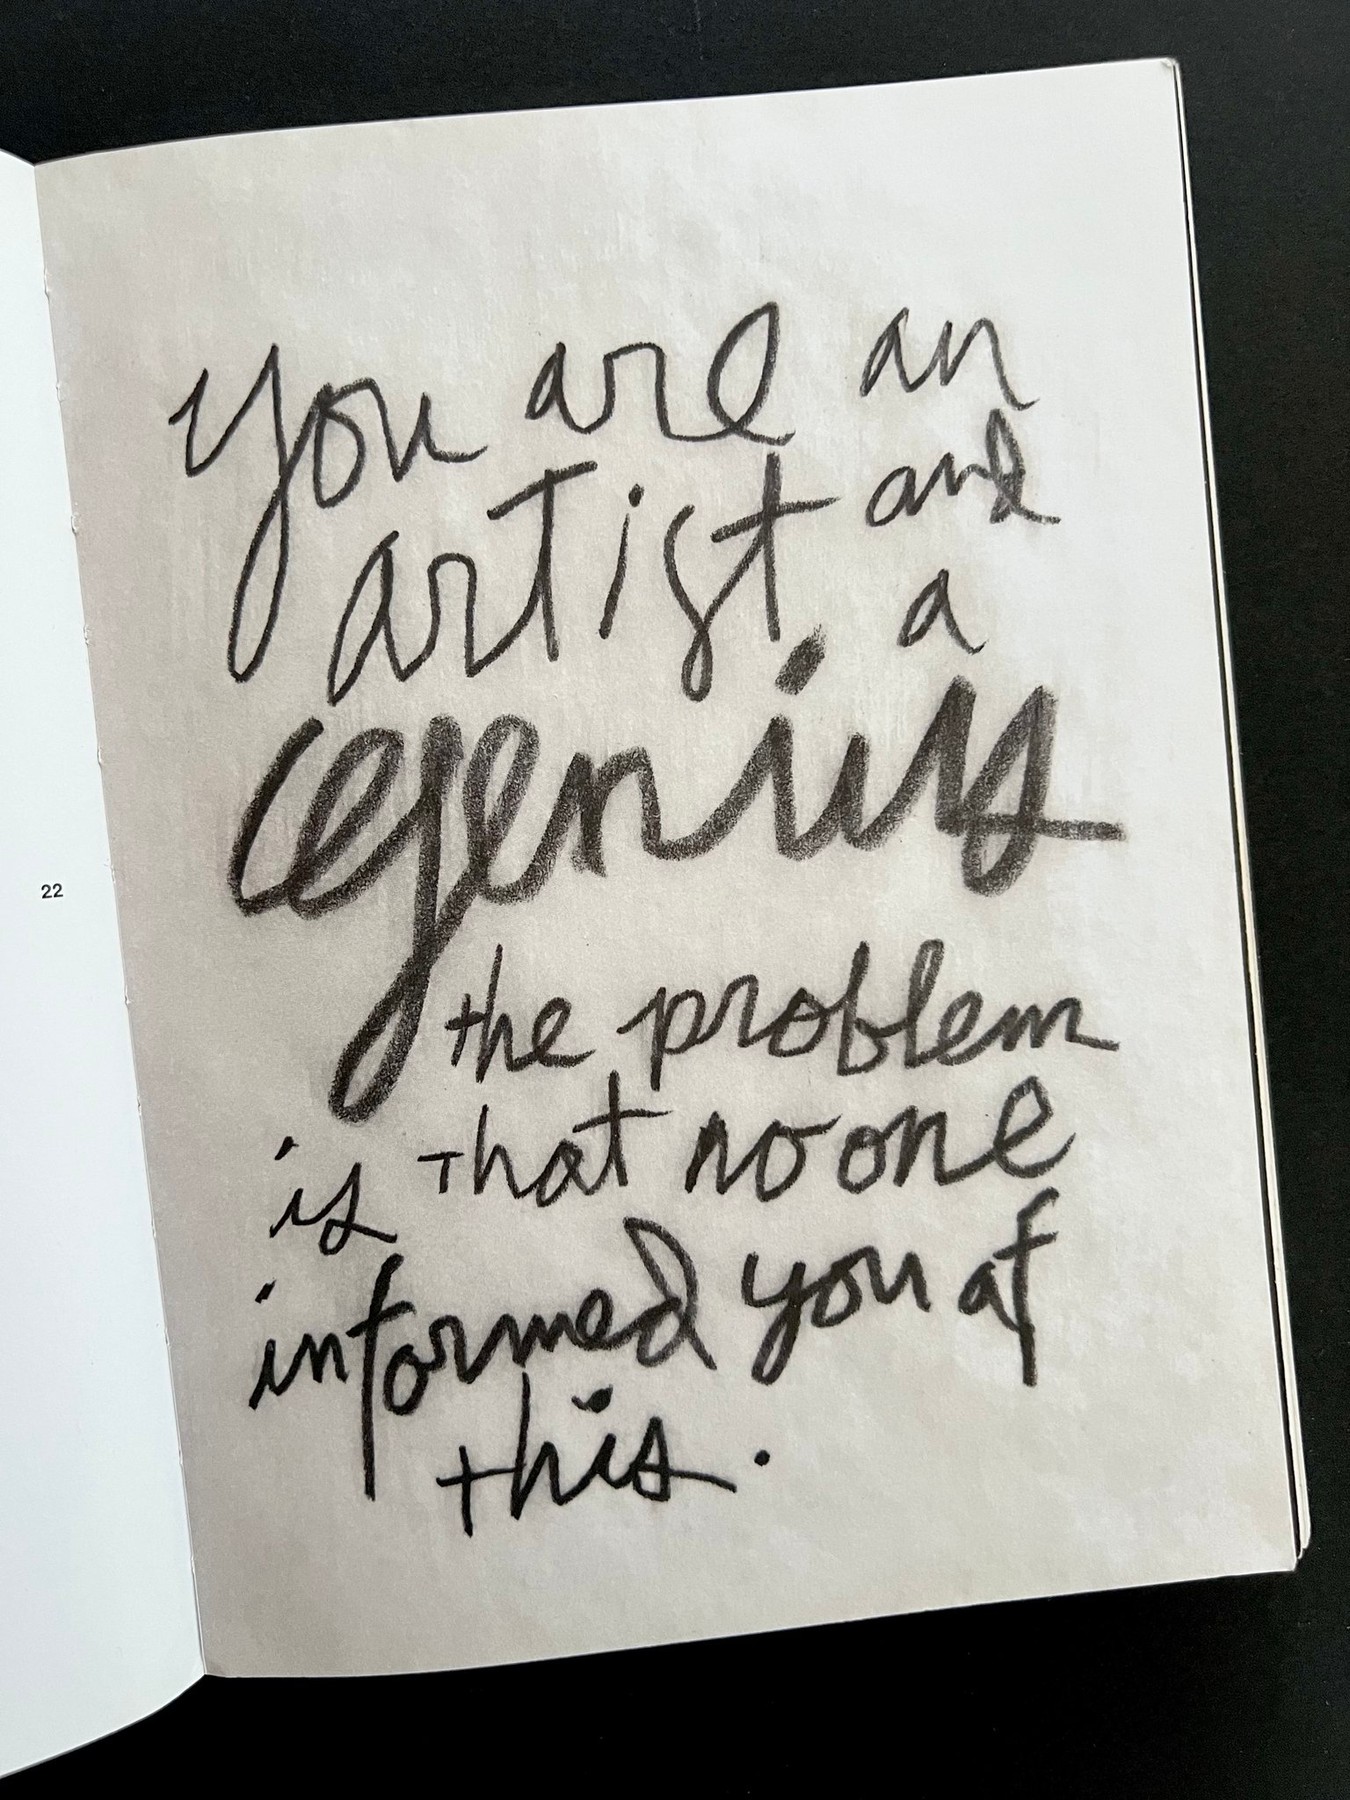 22
you are an
artist and
a
genius
the problem
is that no one
informed you of
this.